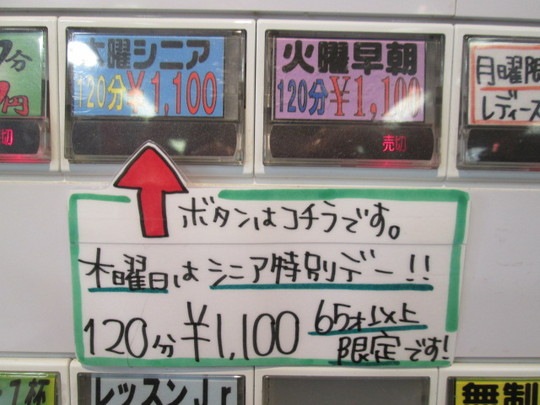 分
円
売切
木曜シニア
120分¥1,100
火曜早朝
120分¥1,100
売切
月曜限
レディース
ボタンはコチラです。
木曜日はシニア特別デー!!
120分¥1,100 65才以上
限定です!
1杯
レッスンJr
無制